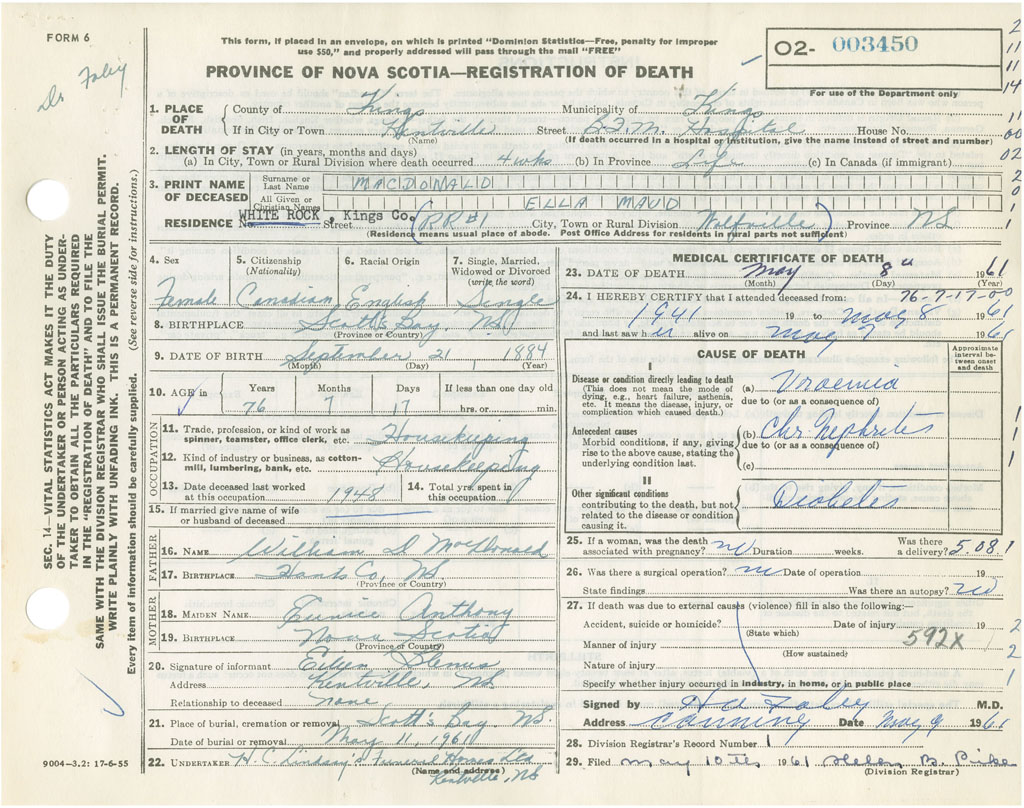 FORM 6
Dr Foley
This form, if placed in an envelope, on which is printed "Dominion Statistics—Free, penalty for improper
use $50," and properly addressed will pass through the mail "FREE"
PROVINCE OF NOVA SCOTIA—REGISTRATION OF DEATH
02- 003450
For use of the Department only
1. PLACE OF DEATH County of Kings Municipality of Kings
If in City or Town Kentville Street B.F.M. Hospital House No.
(Name) (If death occurred in a hospital or institution, give the name instead of street and number)
2. LENGTH OF STAY (in years, months and days)
(a) In City, Town or Rural Division where death occurred 4 wks (b) In Province Life (c) In Canada (if immigrant)
3. PRINT NAME OF DECEASED Surname or Last Name MACDONALD
All Given or Christian Names ELLA MAUD
RESIDENCE No. WHITE ROCK, Kings Co. Street (RR#1 City, Town or Rural Division Wolfville) Province NS
(Residence means usual place of abode. Post Office Address for residents in rural parts not sufficient)
4. Sex Female
5. Citizenship (Nationality) Canadian
6. Racial Origin English
7. Single, Married, Widowed or Divorced (write the word) Single
8. BIRTHPLACE Scott's Bay, NS
(Province or Country)
9. DATE OF BIRTH September 21 1884
(Month) (Day) (Year)
10. AGE in Years Months Days If less than one day old
76 7 17 hrs. or min.
OCCUPATION
11. Trade, profession, or kind of work as spinner, teamster, office clerk, etc. Housekeeping
12. Kind of industry or business, as cotton-mill, lumbering, bank, etc. Housekeeping
13. Date deceased last worked at this occupation 1948
14. Total yrs. spent in this occupation
15. If married give name of wife or husband of deceased
FATHER
16. NAME William D MacDonald
17. BIRTHPLACE Hants Co, NS
(Province or Country)
MOTHER
18. MAIDEN NAME Eunice Anthony
19. BIRTHPLACE Nova Scotia
(Province or Country)
20. Signature of informant Slenus
Address Kentville, NS
Relationship to deceased none
21. Place of burial, cremation or removal Scott's Bay. NS.
Date of burial or removal May 11, 1961
22. UNDERTAKER H. C. Lindsay's Funeral Homes Ltd
(Name and address) Kentville, NS
MEDICAL CERTIFICATE OF DEATH
23. DATE OF DEATH May 8th 1961
(Month) (Day) (Year)
24. I HEREBY CERTIFY that I attended deceased from: 76-7-17-00
1941 19 to May 8 1961
and last saw her alive on May 7 1961
CAUSE OF DEATH
Approximate interval between onset and death
I
Disease or condition directly leading to death
(This does not mean the mode of dying, e.g., heart failure, asthenia, etc. It means the disease, injury, or complication which caused death.)
(a) Uraemia
due to (or as a consequence of)
Antecedent causes
Morbid conditions, if any, giving rise to the above cause, stating the underlying condition last.
(b) Chr Nephritis
due to (or as a consequence of)
(c)
II
Other significant conditions
contributing to the death, but not related to the disease or condition causing it.
Diabetes
25. If a woman, was the death associated with pregnancy? no Duration weeks. Was there a delivery? 5.081
26. Was there a surgical operation? no Date of operation 19
State findings Was there an autopsy? no
27. If death was due to external causes (violence) fill in also the following:—
Accident, suicide or homicide? Date of injury 19
(State which) 592X
Manner of injury
(How sustained)
Nature of injury
Specify whether injury occurred in industry, in home, or in public place
Signed by Foley M.D.
Address Canning Date May 9 1961
28. Division Registrar's Record Number 1
29. Filed May 10th 1961 Helen B. Pirke
(Division Registrar)
SEC. 14—VITAL STATISTICS ACT MAKES IT THE DUTY
OF THE UNDERTAKER OR PERSON ACTING AS UNDER-
TAKER TO OBTAIN ALL THE PARTICULARS REQUIRED
IN THE "REGISTRATION OF DEATH" AND TO FILE THE
SAME WITH THE DIVISION REGISTRAR WHO SHALL ISSUE THE BURIAL PERMIT.
WRITE PLAINLY WITH UNFADING INK. THIS IS A PERMANENT RECORD.
Every item of information should be carefully supplied. (See reverse side for instructions.)
9004-3.2: 17-6-55
2
11
11
14
11
00
02
2
0
1
1
1
1
1
2
2
1